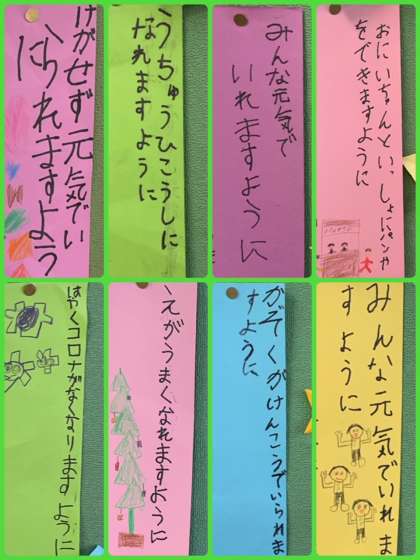 けがせず元気でい
られますよう
うちゅうひこうしに
なれますように
みんな元気で
いれますように
おにいちゃんといっしょにパンや
をできますように
はやくコロナがなくなりますように
えがうまくなれますように
かぞくがけんこうでいられま
すように
みんな元気でいれま
すように